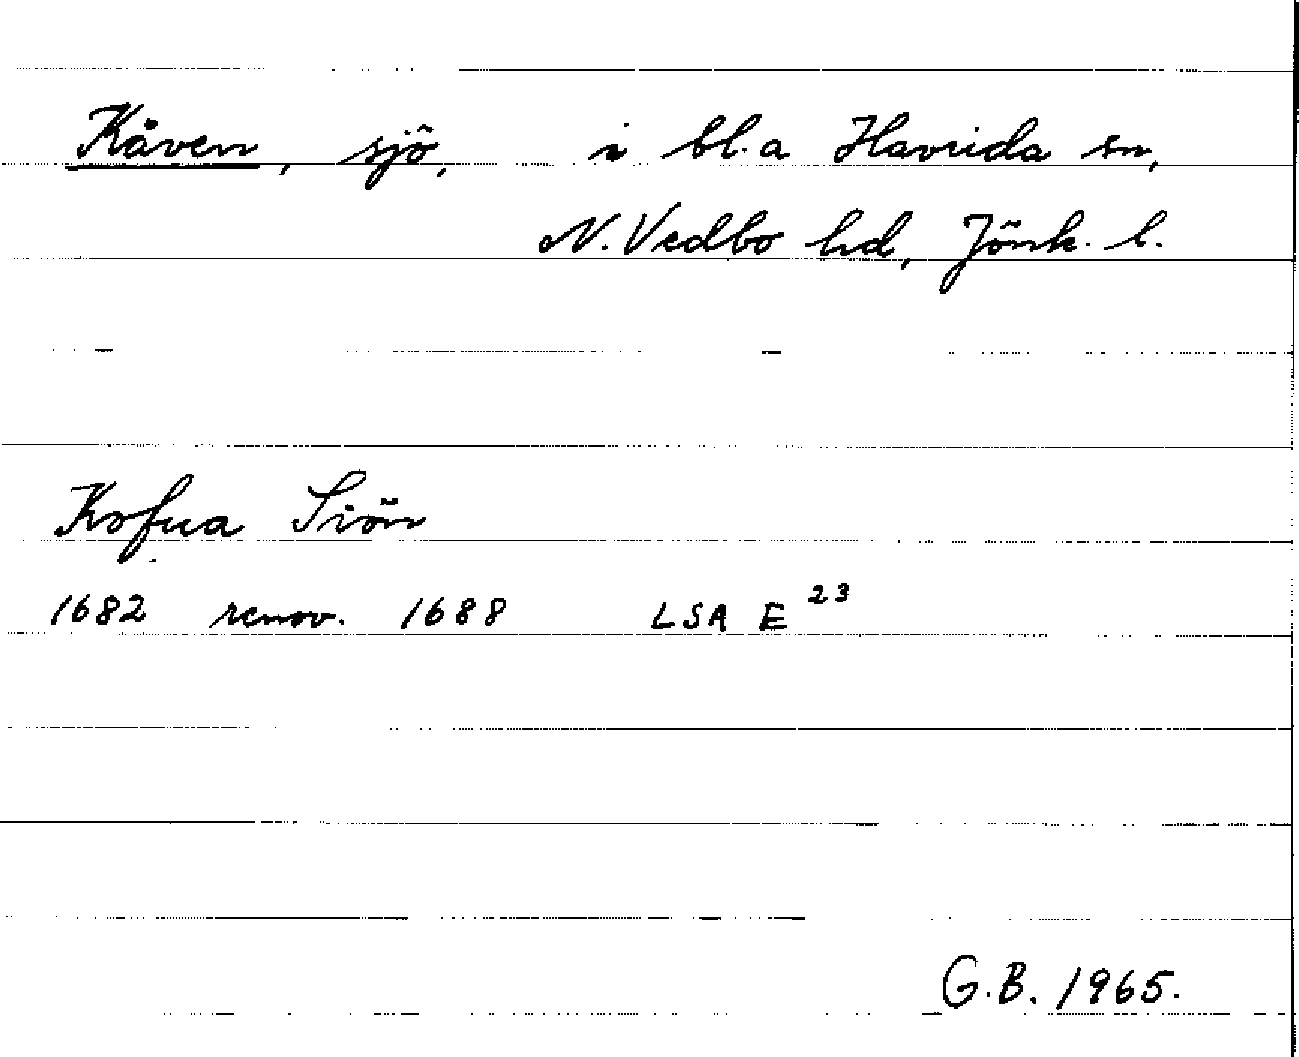 Kåven, sjö, i bl.a Haurida sn,
N. Vedbo hd, Jönk. l.
Kofua Siön
1682 renov. 1688 LSA E 23
G.B. 1965.